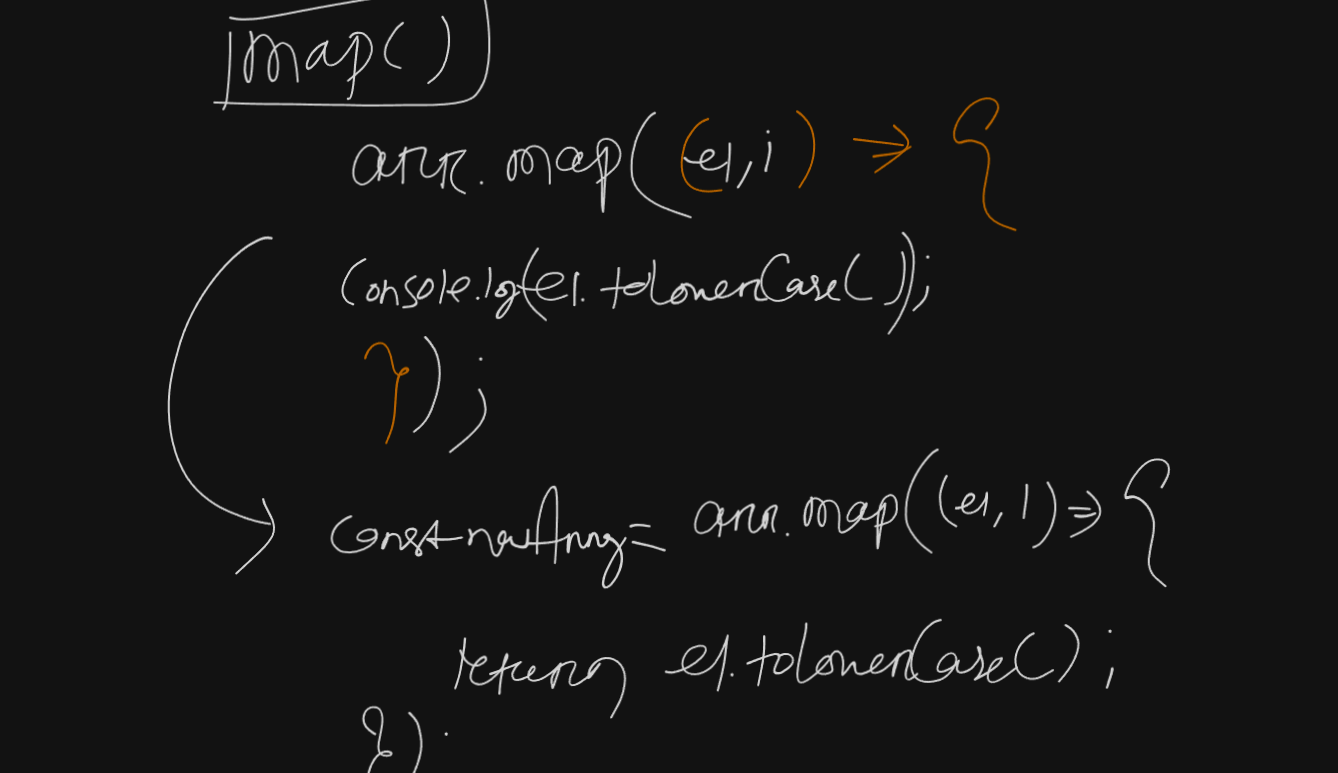 map()
arr.map((el,i) => {
console.log(el.toLowerCase());
});
const newArray = arr.map((el, i) => {
return el.toLowerCase();
})